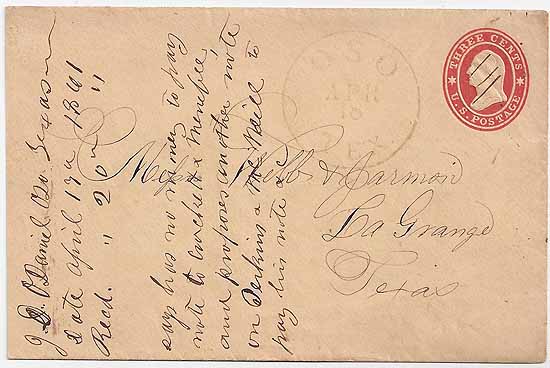 THREE CENTS
U.S. POSTAGE
OSO
APR
TEX
Mess Webb & Jarmon
La Grange
Texas
J. D. O Daniel Oso Texas
Date April 17th 1861
Recd. " 20th "
says has no money to pay
note to & Menefee
and proposes another note
on Perkins & McNeill to
pay his note &c